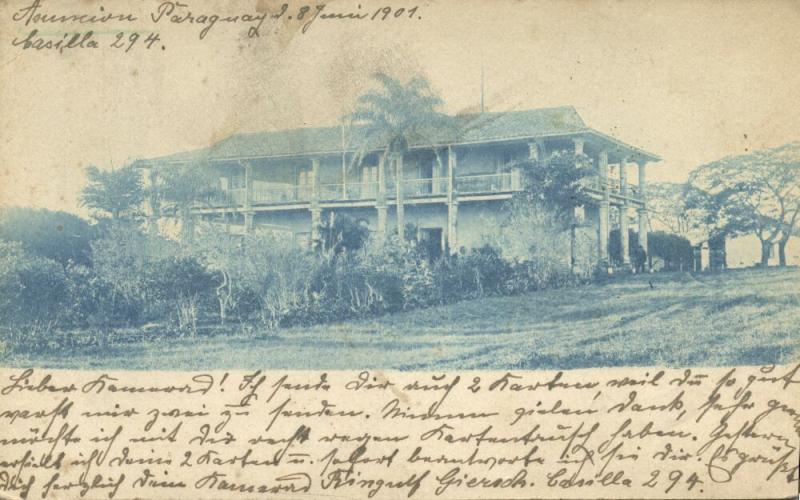 Asuncion Paraguay d. 8 Juni 1901.
Casilla 294.
Lieber Kamerad! Ich sende Dir auch 2 Karten, weil Du so gut
warst mir zwei zu senden. Nimm vielen Dank, sehr gern
möchte ich mit Dir recht regen Kartentausch haben. Gestern
erhielt ich deine 2 Karten u. sofort beantworte ich sie dir. Es grüßt
dich herzlich dein Kamerad Ringulf Giersch. Casilla 294.